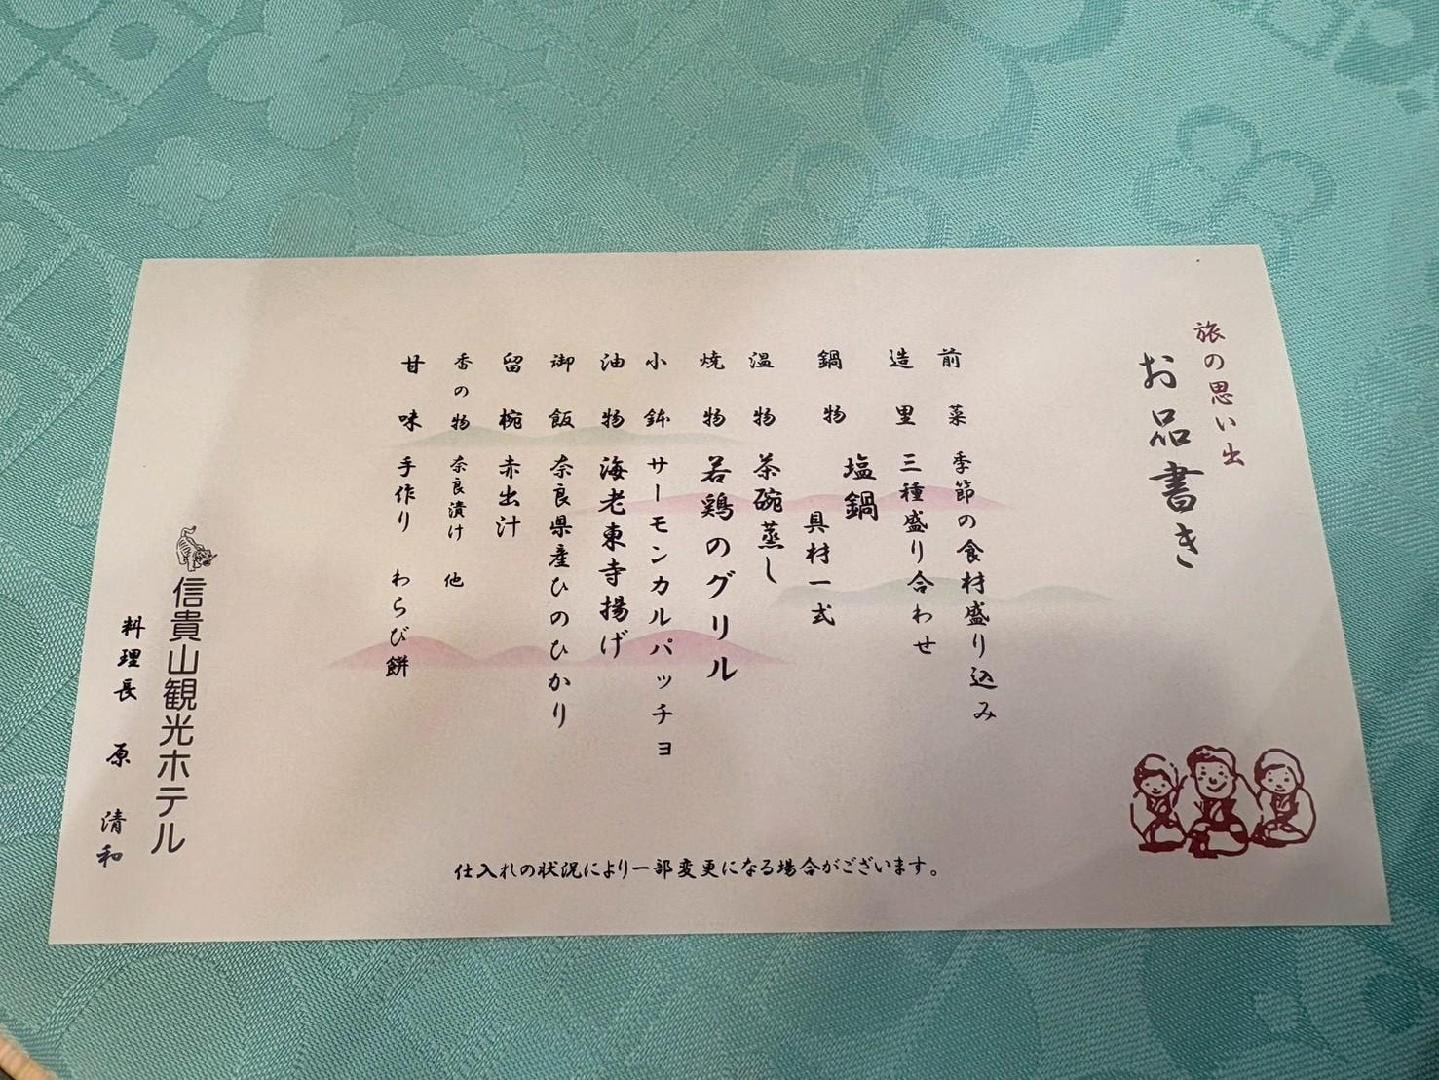 旅の思い出
お品書き
前菜 季節の食材盛り込み
造里 三種盛り合わせ
鍋物 塩鍋
具材一式
温物 茶碗蒸し
焼物 若鶏のグリル
小鉢 サーモンカルパッチョ
油物 海老東寺揚げ
御飯 奈良県産ひのひかり
留椀 赤出汁
香の物 奈良漬け 他
甘味 手作り わらび餅
仕入れの状況により一部変更になる場合がございます。
信貴山観光ホテル
料理長 原 清和